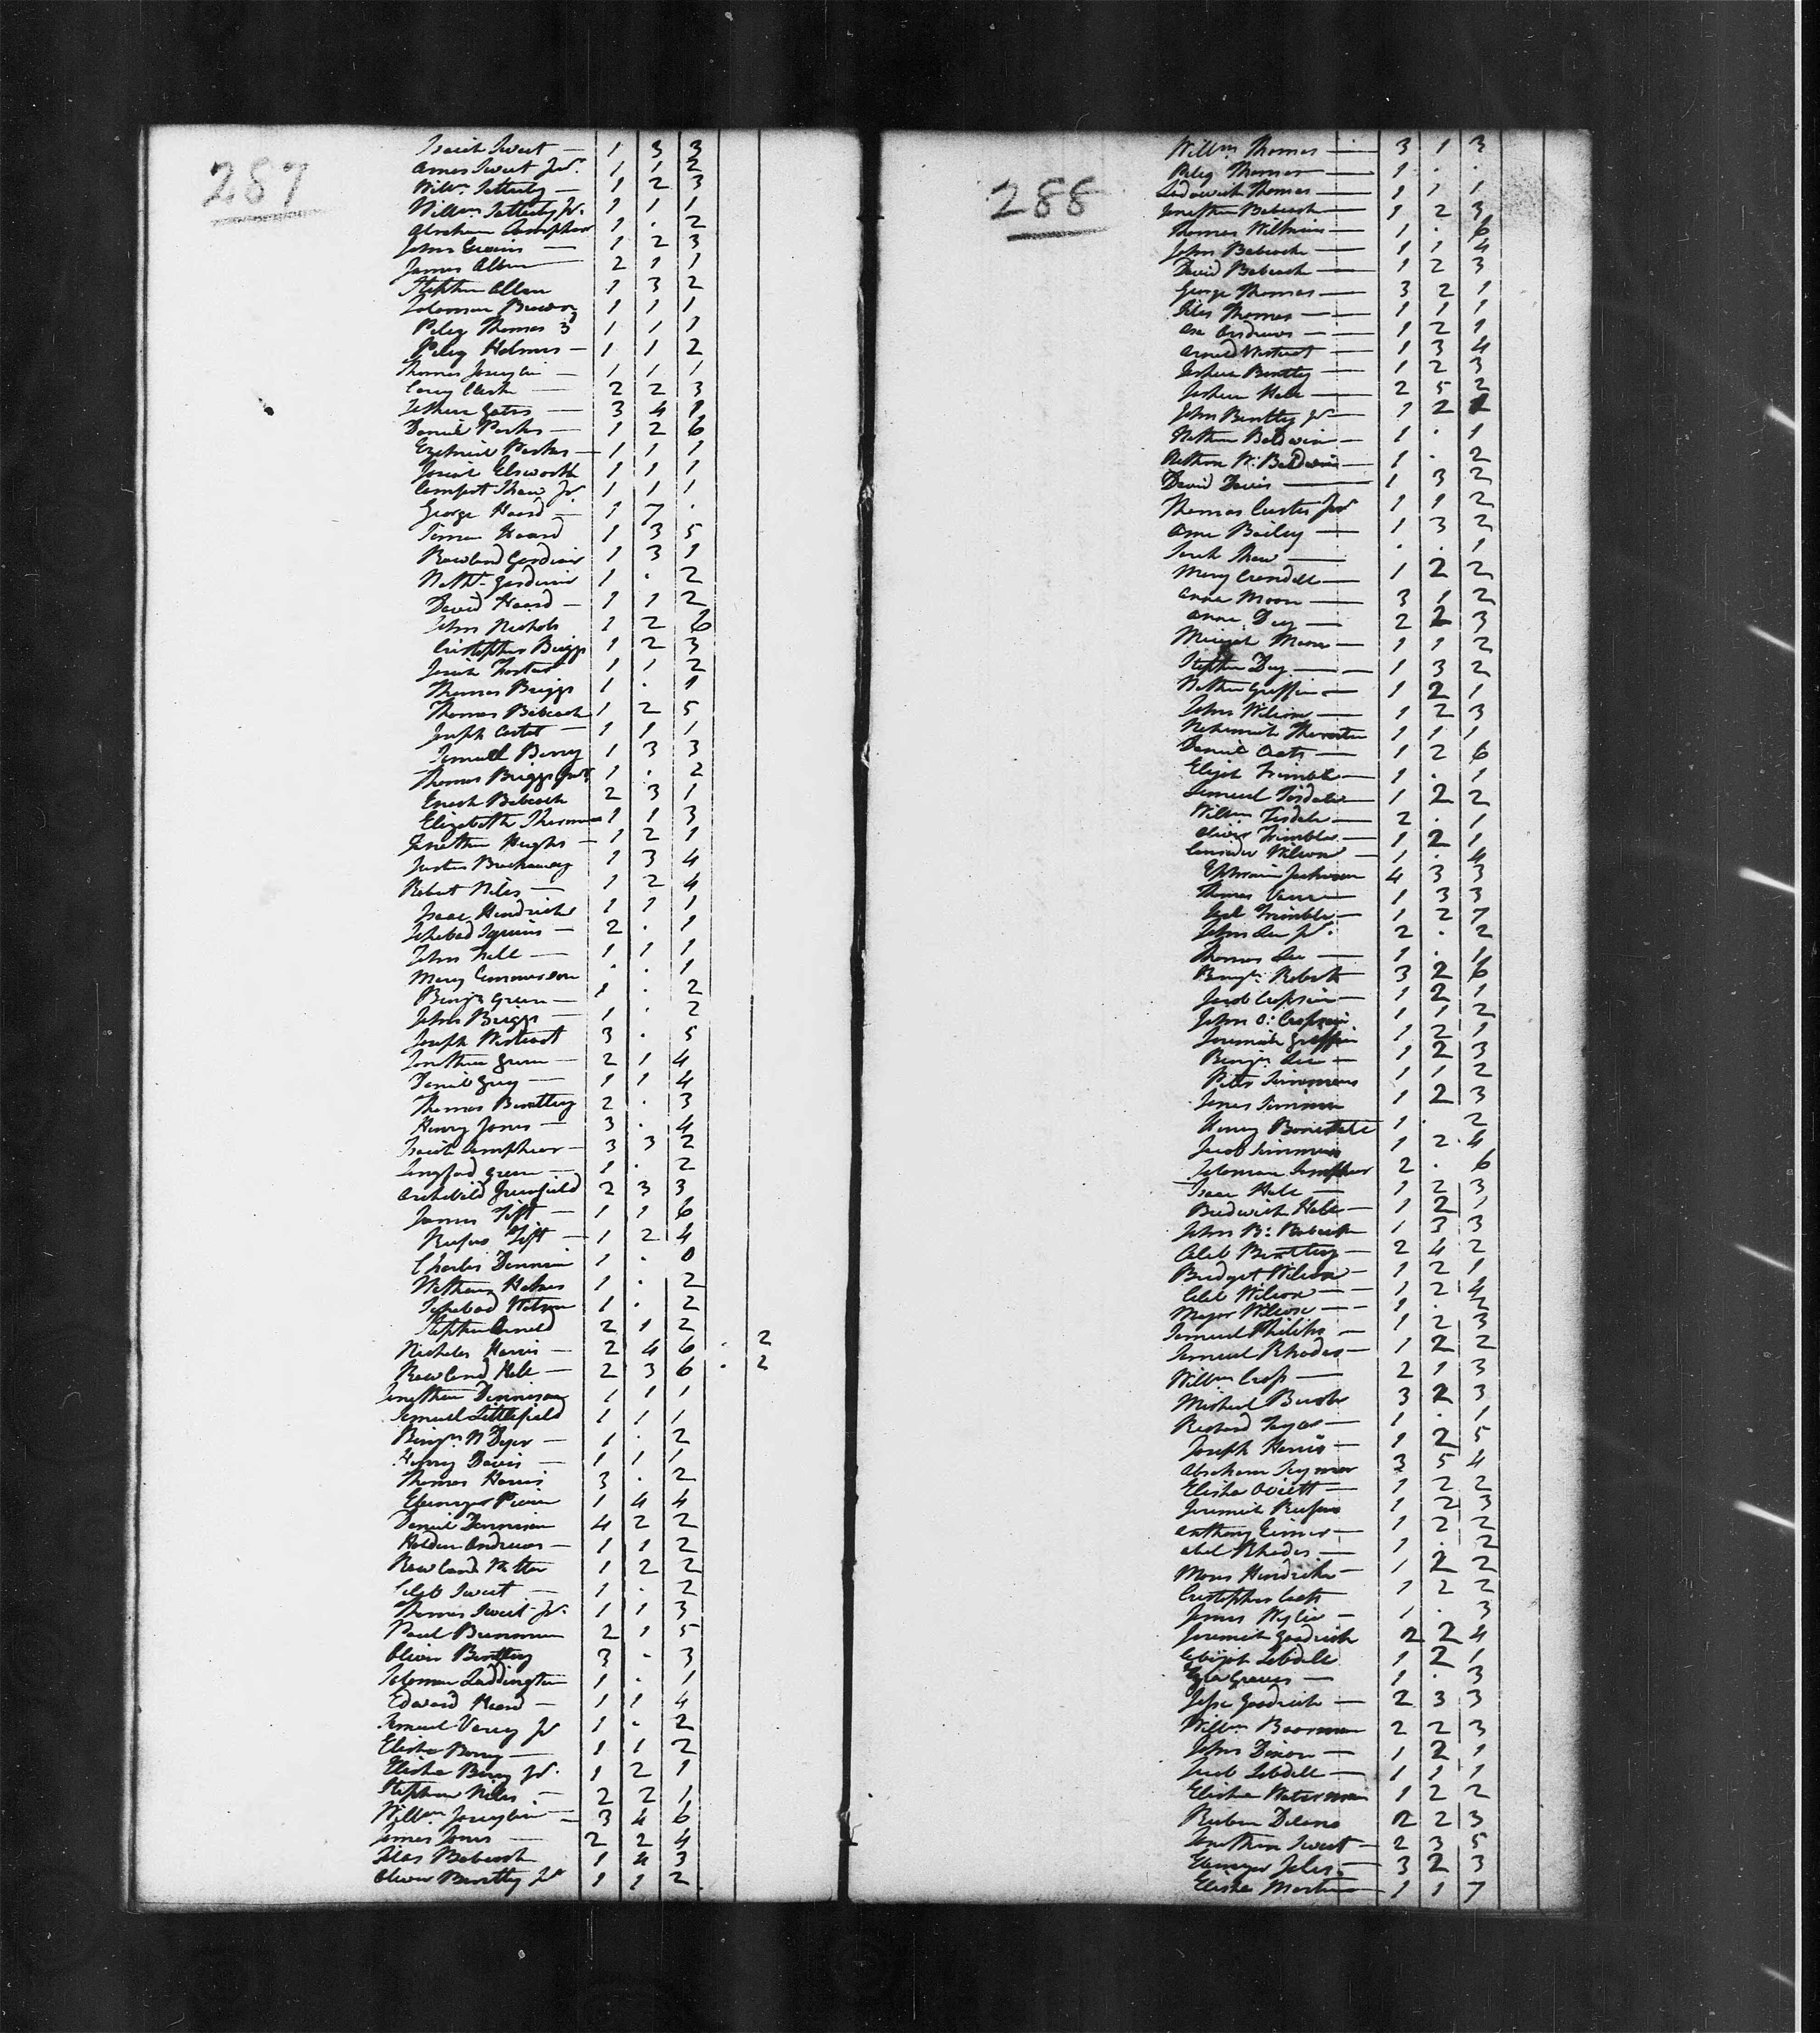 287
Isaiah Sweet — 1 3 3
Amos Sweet Jur. 1 1 2
Willm. Satterly — 1 2 3
Willm. Satterly Jr. 1 1 1
Abraham Lampheer 1 . 2
John Gravis — 1 2 3
James Allen — 2 1 1
Stephen Allen 1 3 2
Solomon Brown 1 1 1
Peleg Thomas 3d 1 1 1
Peleg Holmes — 1 1 2
Thomas Joscylin — 1 1 1
Carey Clark — 2 2 3
Gates — 3 4 1
Daniel Parks — 1 2 6
Ezekniel Parks — 1 1 1
Josiah Elsworth 1 1 1
Comfort Shaw Jr. 1 1 1
George Hoard — 1 7 .
Simon Hoard 1 3 5
Rowland Gardiner 1 3 1
Nathl. Gardiner 1 . 2
David Hoard — 1 1 2
John Nichols 1 2 6
Cristopher Briggs 1 2 3
Josiah Foster 1 1 2
Thomas Briggs 1 . 1
Thomas Babcock 1 2 5
Joseph Carter — 1 1 1
Samuel Berry 1 3 3
Thomas Briggs Jur. 1 . 2
Enock Babcock 2 3 1
Elizabeth Thomas 1 1 3
Jonathan Hughs — 1 2 1
Justus Brockaway 1 3 4
Robert Niles — 1 2 4
Isaac Hendricks 1 1 1
Ichabod Squires — 2 . 1
John Hall — 1 1 1
Mary Cammerson . . 1
Benjn. Green — 1 . 2
John Briggs — 1 . 2
Joseph Westcoat 3 . 5
Jonathan Green — 2 1 4
Daniel Gray — 1 1 4
Thomas Bentley 2 . 3
Henry Jones — 3 . 4
Isaiah Lampheer — 3 3 2
Langford Green — 1 . 2
Archibald Greenfield 2 3 3
James Tift — 1 1 6
Rufus Tift — 1 2 4
Charles Dennison 1 . 0
Nathan Holmes 1 . 2
Ichabod Watson 1 . 2
Stephen Arnold 2 1 2
Nicholas Harris — 2 4 6 . 2
Rowland Hall — 2 3 6 . 2
Jonathan Dennison 1 1 1
Samuel Littlefield 1 1 1
Benjn. N Dyer — 1 . 2
Henry Davis — 1 1 1
Thomas Harris 3 . 2
Ebenezer Pierce 1 4 4
Daniel Dennison 4 2 2
Holden Andrews — 1 1 2
Rowland Potter 1 2 2
Caleb Sweet — 1 . 2
Thomas Sweet Jr. 1 1 3
Paul Brennan 2 1 5
Oliver Bentley 3 . 3
Soloman Laddington 1 . 1
Edward Hoard — 1 1 4
Samuel Varry Jr 1 . 2
Elisha Berry — 1 1 2
Elisha Berry Jr. 1 2 1
Stephen Niles — 2 2 1
Willm. Joscylin — 3 4 6
James Jones — 2 2 4
Silas Babcock 1 4 3
Oliver Bentley Jr 1 1 2
288
Willm. Thomas — 3 1 3
Peleg Thomas — 1 . .
Thomas — 1 1 1
Jonathan Babcock — 1 2 3
Thomas Wilkinson — 1 . 6
John Babcock — 1 1 4
David Babcock — 1 2 3
George Thomas — 3 2 1
Silas Thomas — 1 1 1
Asa Andrews — 1 2 1
Arnold Westcoat — 1 3 4
Joshua Bentley — 1 2 3
Joshua Hall — 2 5 2
John Bentley Jr — 1 2 2
Nathan Baldwin — 1 . 1
Nathan W. Baldwin — 1 . 2
David Davis — 1 3 2
Thomas Custis Jur 1 1 2
Amr Bailey — 1 3 2
Sarah Shaw — . . 1
Mary Crandall — 1 2 2
Anna Moon — 3 1 2
Anna Day — 2 2 3
Moon — 1 1 2
Stephen Day — 1 3 2
Nathan Griffin — 1 2 1
John Wilson — 1 2 3
Nehemiah Thornton 1 1 1
Daniel Coats — 1 2 6
Elijah Trimble — 1 . 1
Samuel Tisdale — 1 2 2
Willm. Tisdale — 2 . 1
Oliver Trimble — 1 2 1
Consider Wilson — 1 . 4
Ephraim Jackson 4 3 3
Thomas Vause — 1 3 3
Joel Trimble — 1 2 7
John Lee Jr. 2 . 2
Thomas Lee — 1 . 1
Benjn. Roberts 3 2 6
Jacob Crapsin — 1 2 1
John O. Crapsin 1 1 2
Jeremiah Griffin 1 2 1
Benjn. Lee — 1 2 3
Potts Simmons 1 1 2
Jonas Simmons 1 2 3
Henry Bonestale 1 . 2
Jacob Simmons 1 2 4
Soloman Lampheer 2 . 6
Isaac Hall — 1 2 3
Hall — 1 2 1
John B. Babcock 1 3 3
Caleb Bentley — 2 4 2
Bridget Wilson — 1 2 1
Caleb Wilson — 1 2 4
Major Wilson — 1 . 2
Samuel Philips — 1 2 3
Samuel Rhodes — 1 2 2
Willm Cross — 2 1 3
Michael Burch 3 2 3
Richard Taylor — 1 . 1
Joseph Harris — 1 2 5
Abraham Seymor 3 5 4
Elisha Oviett — 1 2 2
Jeremiah Rufus 1 2 3
Anthony Eimer — 1 2 2
Abel Rhodes — 1 . 2
Moses Hendricks — 1 2 2
Cristopher Coats 1 2 2
James Wylie — 1 . 3
Jeremiah Goodrich 2 2 4
Lobdell 1 2 1
Ezra Graves — 1 . 3
Jesse Goodrich — 2 3 3
Willm. Boorman 2 2 3
John Dixon — 1 2 1
Jacob Lobdell — 1 1 1
Elisha Waterman 1 2 2
Reuben Delano 2 2 3
Jonathan Sweet — 2 3 5
Ebenezer Jeles — 3 2 3
Elisha Martin — 1 1 7